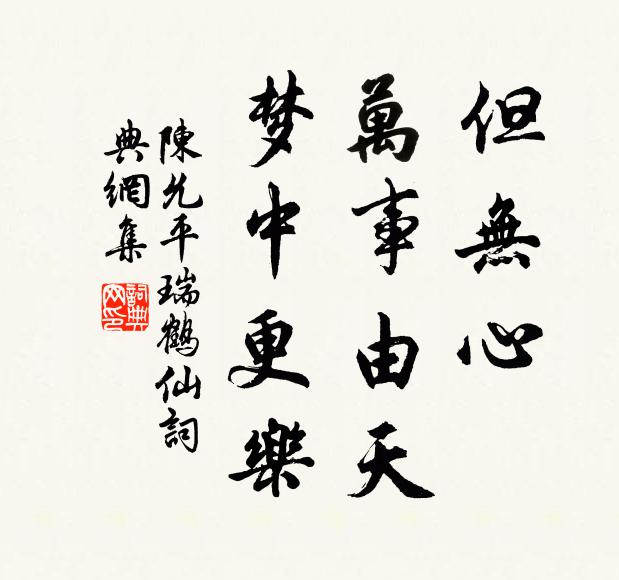 但無心
萬事由天
梦中更樂
陳允平瑞鶴仙詞
典網集
詞典网印